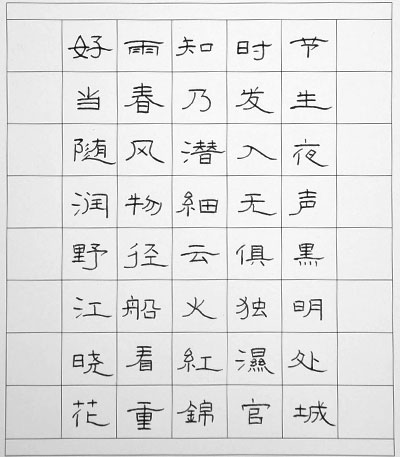 好雨知时节
当春乃发生
随风潜入夜
润物細无声
野径云俱黒
江船火独明
晓看紅濕处
花重錦官城